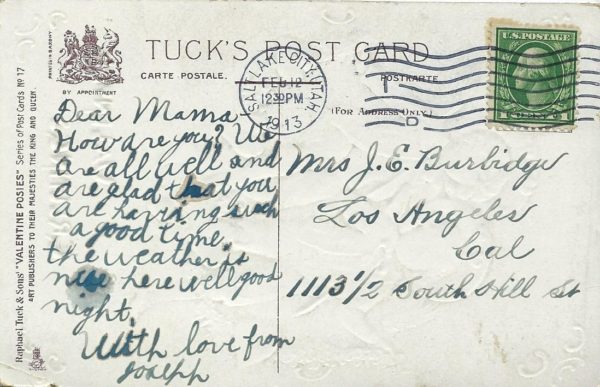 TUCK'S POST CARD
CARTE POSTALE.
POSTKARTE
(FOR ADDRESS ONLY.)
PRINTED IN SAXONY
BY APPOINTMENT
Raphael Tuck & Sons' "VALENTINE POSIES" Series of Post Cards No 17
ART PUBLISHERS TO THEIR MAJESTIES THE KING AND QUEEN.
SALT LAKE CITY, UTAH
FEB 12
12 30 PM
1913
D
U.S. POSTAGE
Dear Mama
How are you? We
are all well and
are glad that you
are having such
a good time.
the weather is
nice here well good
night.
With love from
Joseph
Mrs J. E. Burbidge
Los Angeles
Cal
1113 1/2 South Hill St